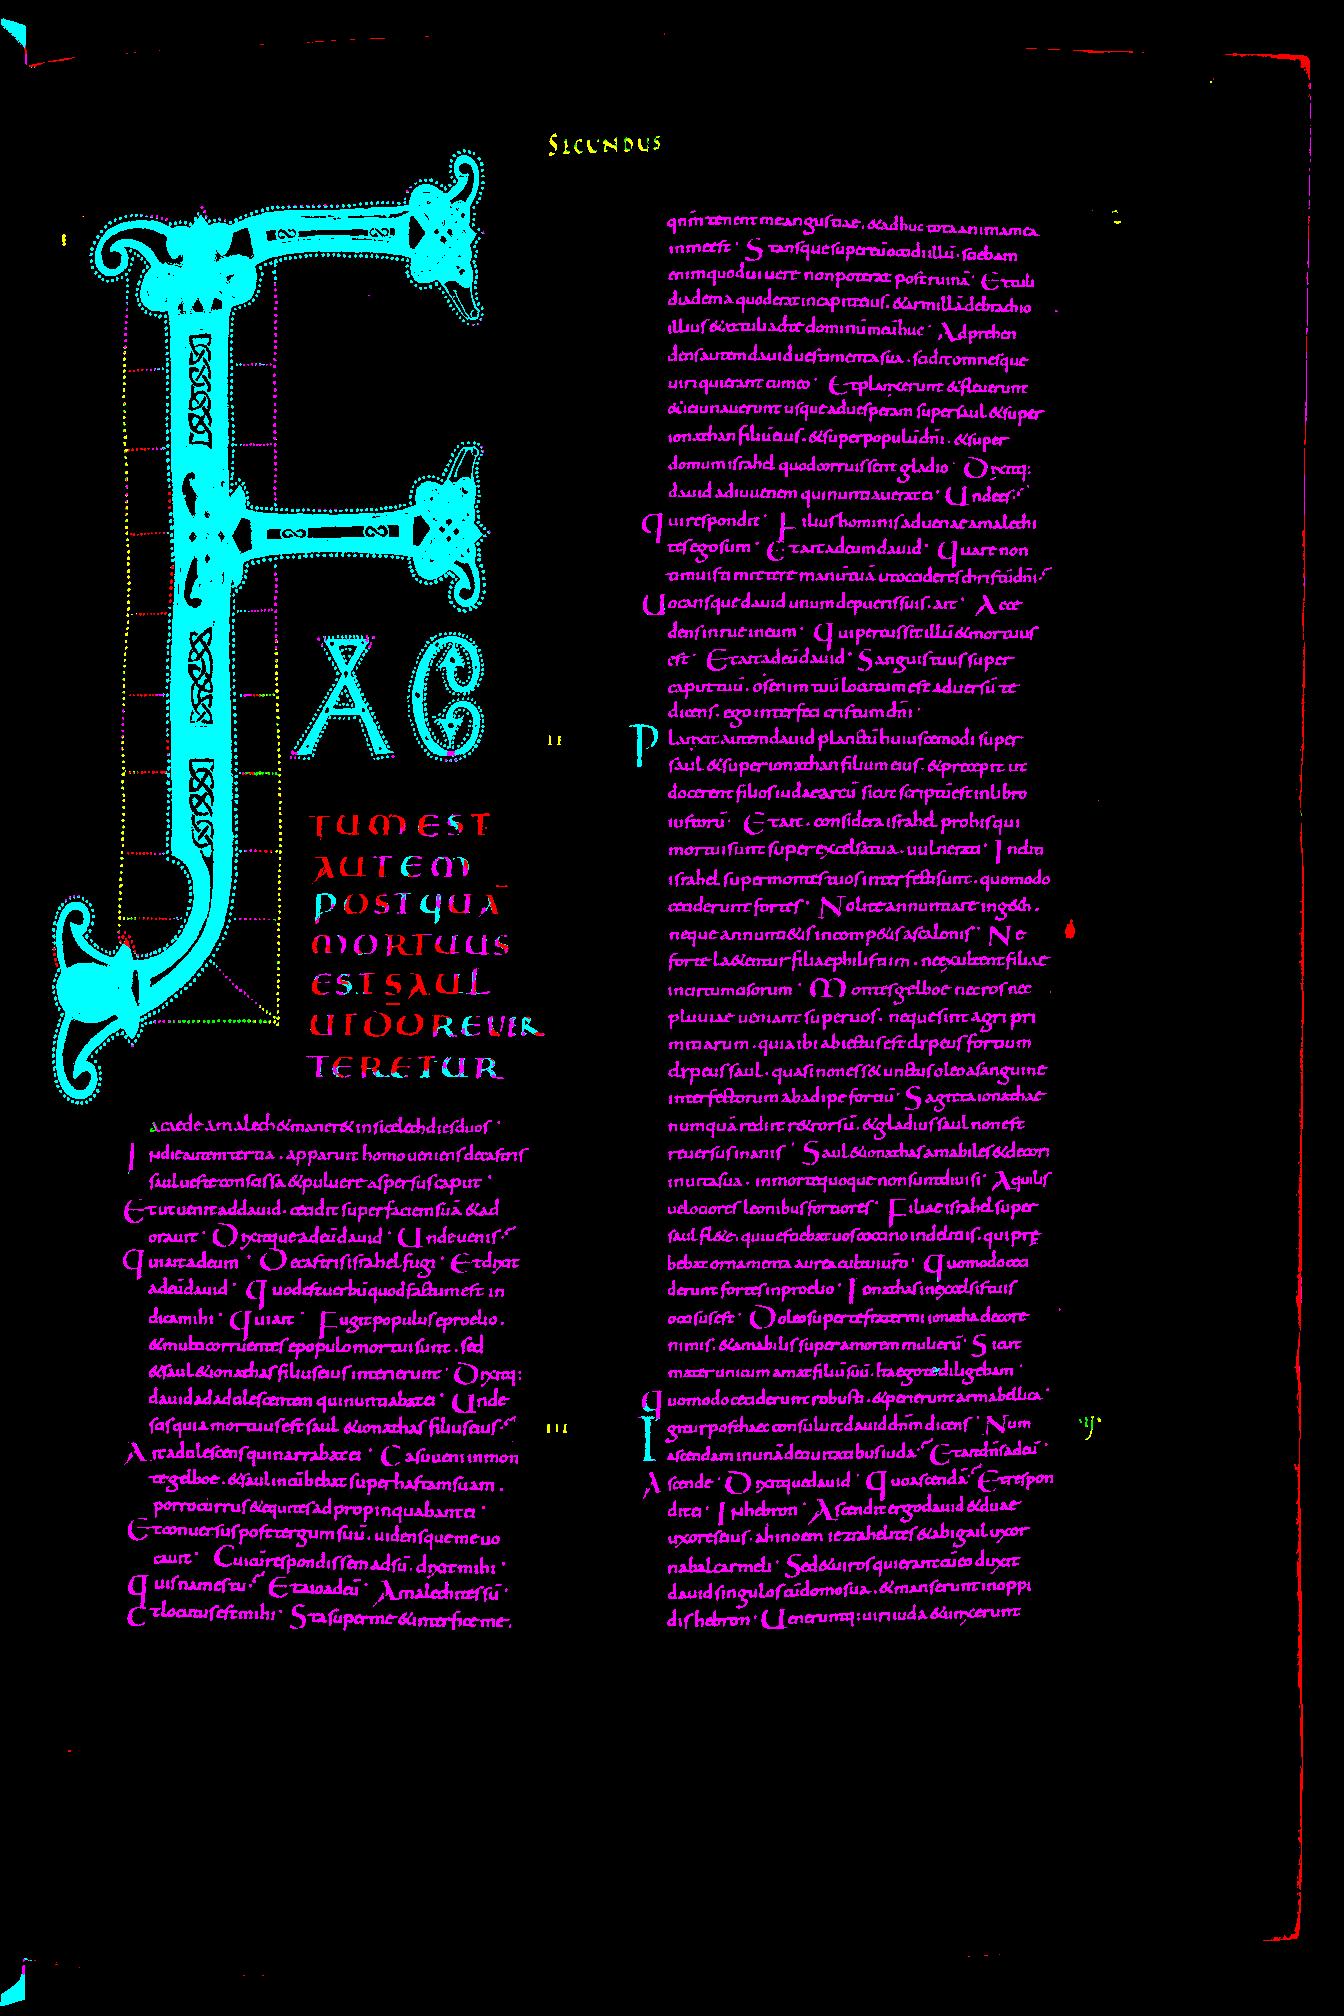 SECUNDUS
I
FAC
TUM EST
AUTEM
POSTQUĀ
MORTUUS
EST SAUL
UT DD REVER
TERETUR
a caede amalech & maner& in sicelech dies duos
In die autem tertia. apparuit homo veniens de castris
saul veste conscissa & pulvere aspersus caput
Et ut venit ad david. cecidit super faciem suā & ad
oravit Dixitque ad eū david Unde venis
Qui ait ad eum De castris israhel fugi Et dixit
ad eū david Quod est verbū quod factum est in
dica mihi Qui ait Fugit populus e proelio.
& multi corruentes e populo mortui sunt. sed
& saul & ionathas filius eius interierunt Dixitq:
david ad adolescentem qui nuntiabat ei Unde
scis quia mortuus est saul & ionathas filius eius
Ait adolescens qui narrabat ei Casu veni in mon
te gelboe. & saul incūbebat super hastam suam.
porro currus & equites adpropinquabant ei
Et conversus post tergum suū. vidensque me vo
cavit Cui cū respondissem adsū. dixit mihi
Quis nam es tu Et aio ad eū Amalechites sū
Et locutus est mihi Sta super me & interfice me.
qnīm tenent me angustiae. & adhuc tota anima mea
in me est Stansque super eū occidi illū. sciebam
enim quod vivere non poterat post ruinā Et tuli
diadema quod erat in capite eius. & armillā de brachio
illius & attuli ad te dominū meū huc Adprehen
dens autem david vestimenta sua. scidit omnesque
viri qui erant cum eo Et planxerunt & fleverunt
& ieiunaverunt usque ad vesperam super saul & super
ionathan filiū eius. & super populū dn̄i. & super
domum israhel quod corruissent gladio Dixitq:
david ad iuvenem qui nuntiaverat ei Unde es
Qui respondit Filius hominis advenae amalechi
tes ego sum Et ait ad eum david Quare non
timuisti mittere manū tuā ut occideres christū dn̄i
Vocansque david unum de pueris suis. ait Acce
dens inrue in eum Qui percussit illū & mortuus
est Et ait ad eū david Sanguis tuus super
caput tuū. os enim tuū locutum est adversū te
dicens. ego interfeci cristum dn̄i
II
Planxit autem david planctū huiuscemodi super
saul & super ionathan filium eius. & praecepit ut
docerent filios iudae arcū sicut scriptū est in libro
iustorū Et ait. considera israhel pro his qui
mortui sunt super excelsa tua. vulnerati Incliti
israhel super montes tuos interfecti sunt. quomodo
ceciderunt fortes Nolite annuntiare in g&h.
neque annunti&is in comp&is ascalonis Ne
forte la&entur filiae philistiim. ne exultent filiae
incircumcisorum Montes gelboe nec ros nec
pluviae veniant super vos. neque sint agri pri
mitiarum. quia ibi abiectus est clypeus fortium
clypeus saul. quasi non ess& unctus oleo a sanguine
interfectorum ab adipe fortiū Sagitta ionathae
numquā rediit r&rorsū. & gladius saul non est
reversus inanis Saul & ionathas amabiles & decori
in vita sua. in morte quoque non sunt divisi Aquilis
velociores leonibus fortiores Filiae israhel super
saul fl&e. qui vestiebat vos coccino in deliciis. qui prę
bebat ornamenta aurea cultui vr̄o Quomodo ceci
derunt fortes in proelio Ionathas in excelsis tuis
occisus est Doleo super te frater mi ionatha decore
nimis. & amabilis super amorem mulierū Sicut
mater unicum amat filiū suū. ita ego te diligebam
Quomodo ceciderunt robusti. & perierunt arma bellica
III
Igitur post haec consuluit david dn̄m dicens Num
ascendam in unā de civitatibus iuda Et ait dn̄s ad eū
Ascende Dixitque david Quo ascendā Et respon
dit ei In hebron Ascendit ergo david & duae
uxores eius. ahinoem iezrahelites & abigail uxor
nabal carmeli Sed & viros qui erant cū eo duxit
david singulos cū domo sua. & manserunt in oppi
dis hebron Veneruntq: viri iuda & unxerunt